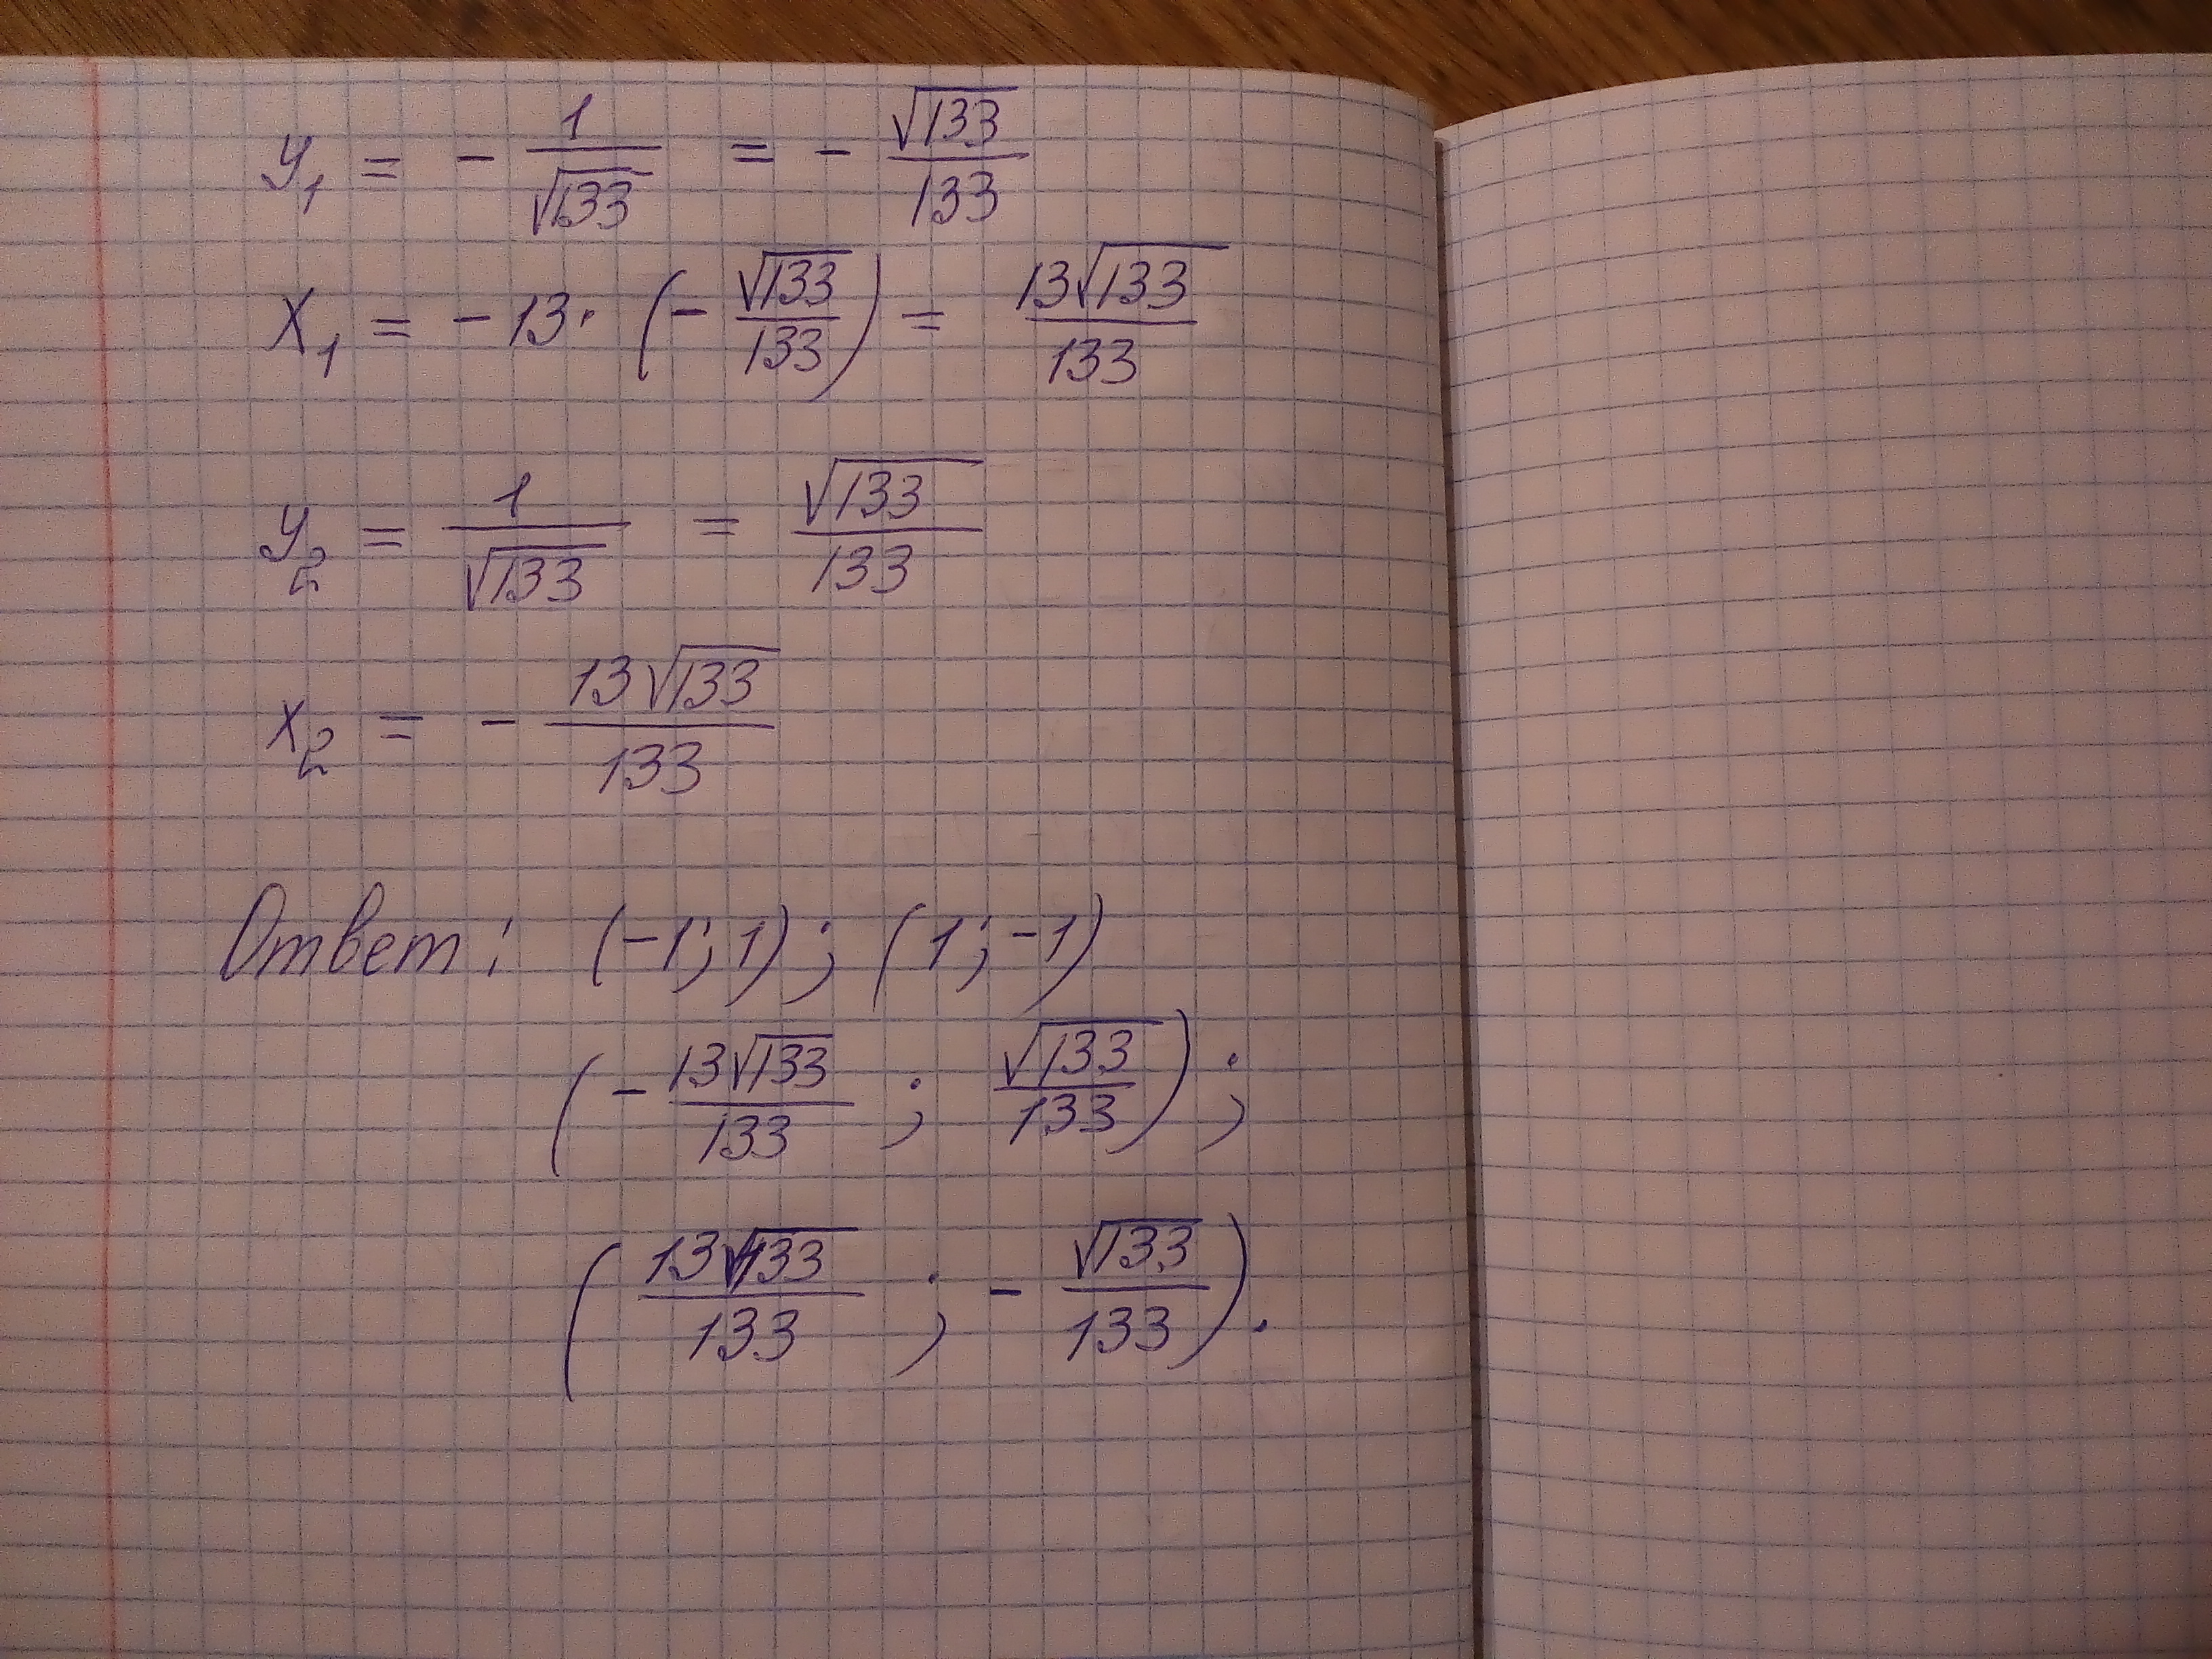 y₁ = - 1/√133 = - √133/133
x₁ = -13 · (- √133/133) = 13√133/133
y₂ = 1/√133 = √133/133
x₂ = - 13√133/133
Ответ: (-1; 1); (1; -1)
(- 13√133/133 ; √133/133);
(13√133/133 ; - √133/133).